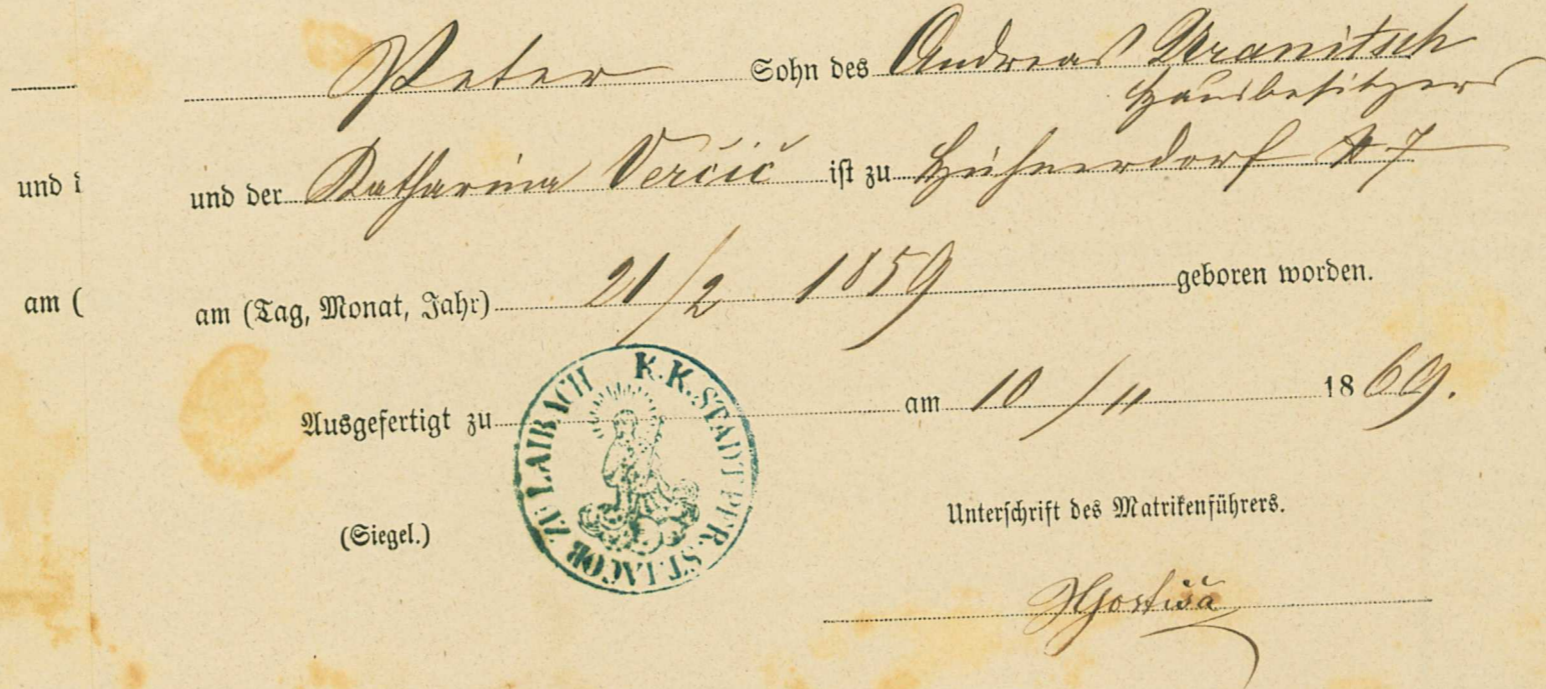 Peter Sohn des Andreas Uranitsch
Hausbesitzers
und der Katharina Verčič ist zu Hühnerdorf # 7
am (Tag, Monat, Jahr) 21/2 1859 geboren worden.
Ausgefertigt zu am 10/11 1869.
K.K. STADTPFR. ST. JACOB ZU LAIBACH
(Siegel.)
Unterschrift des Matrikenführers.
und
am (